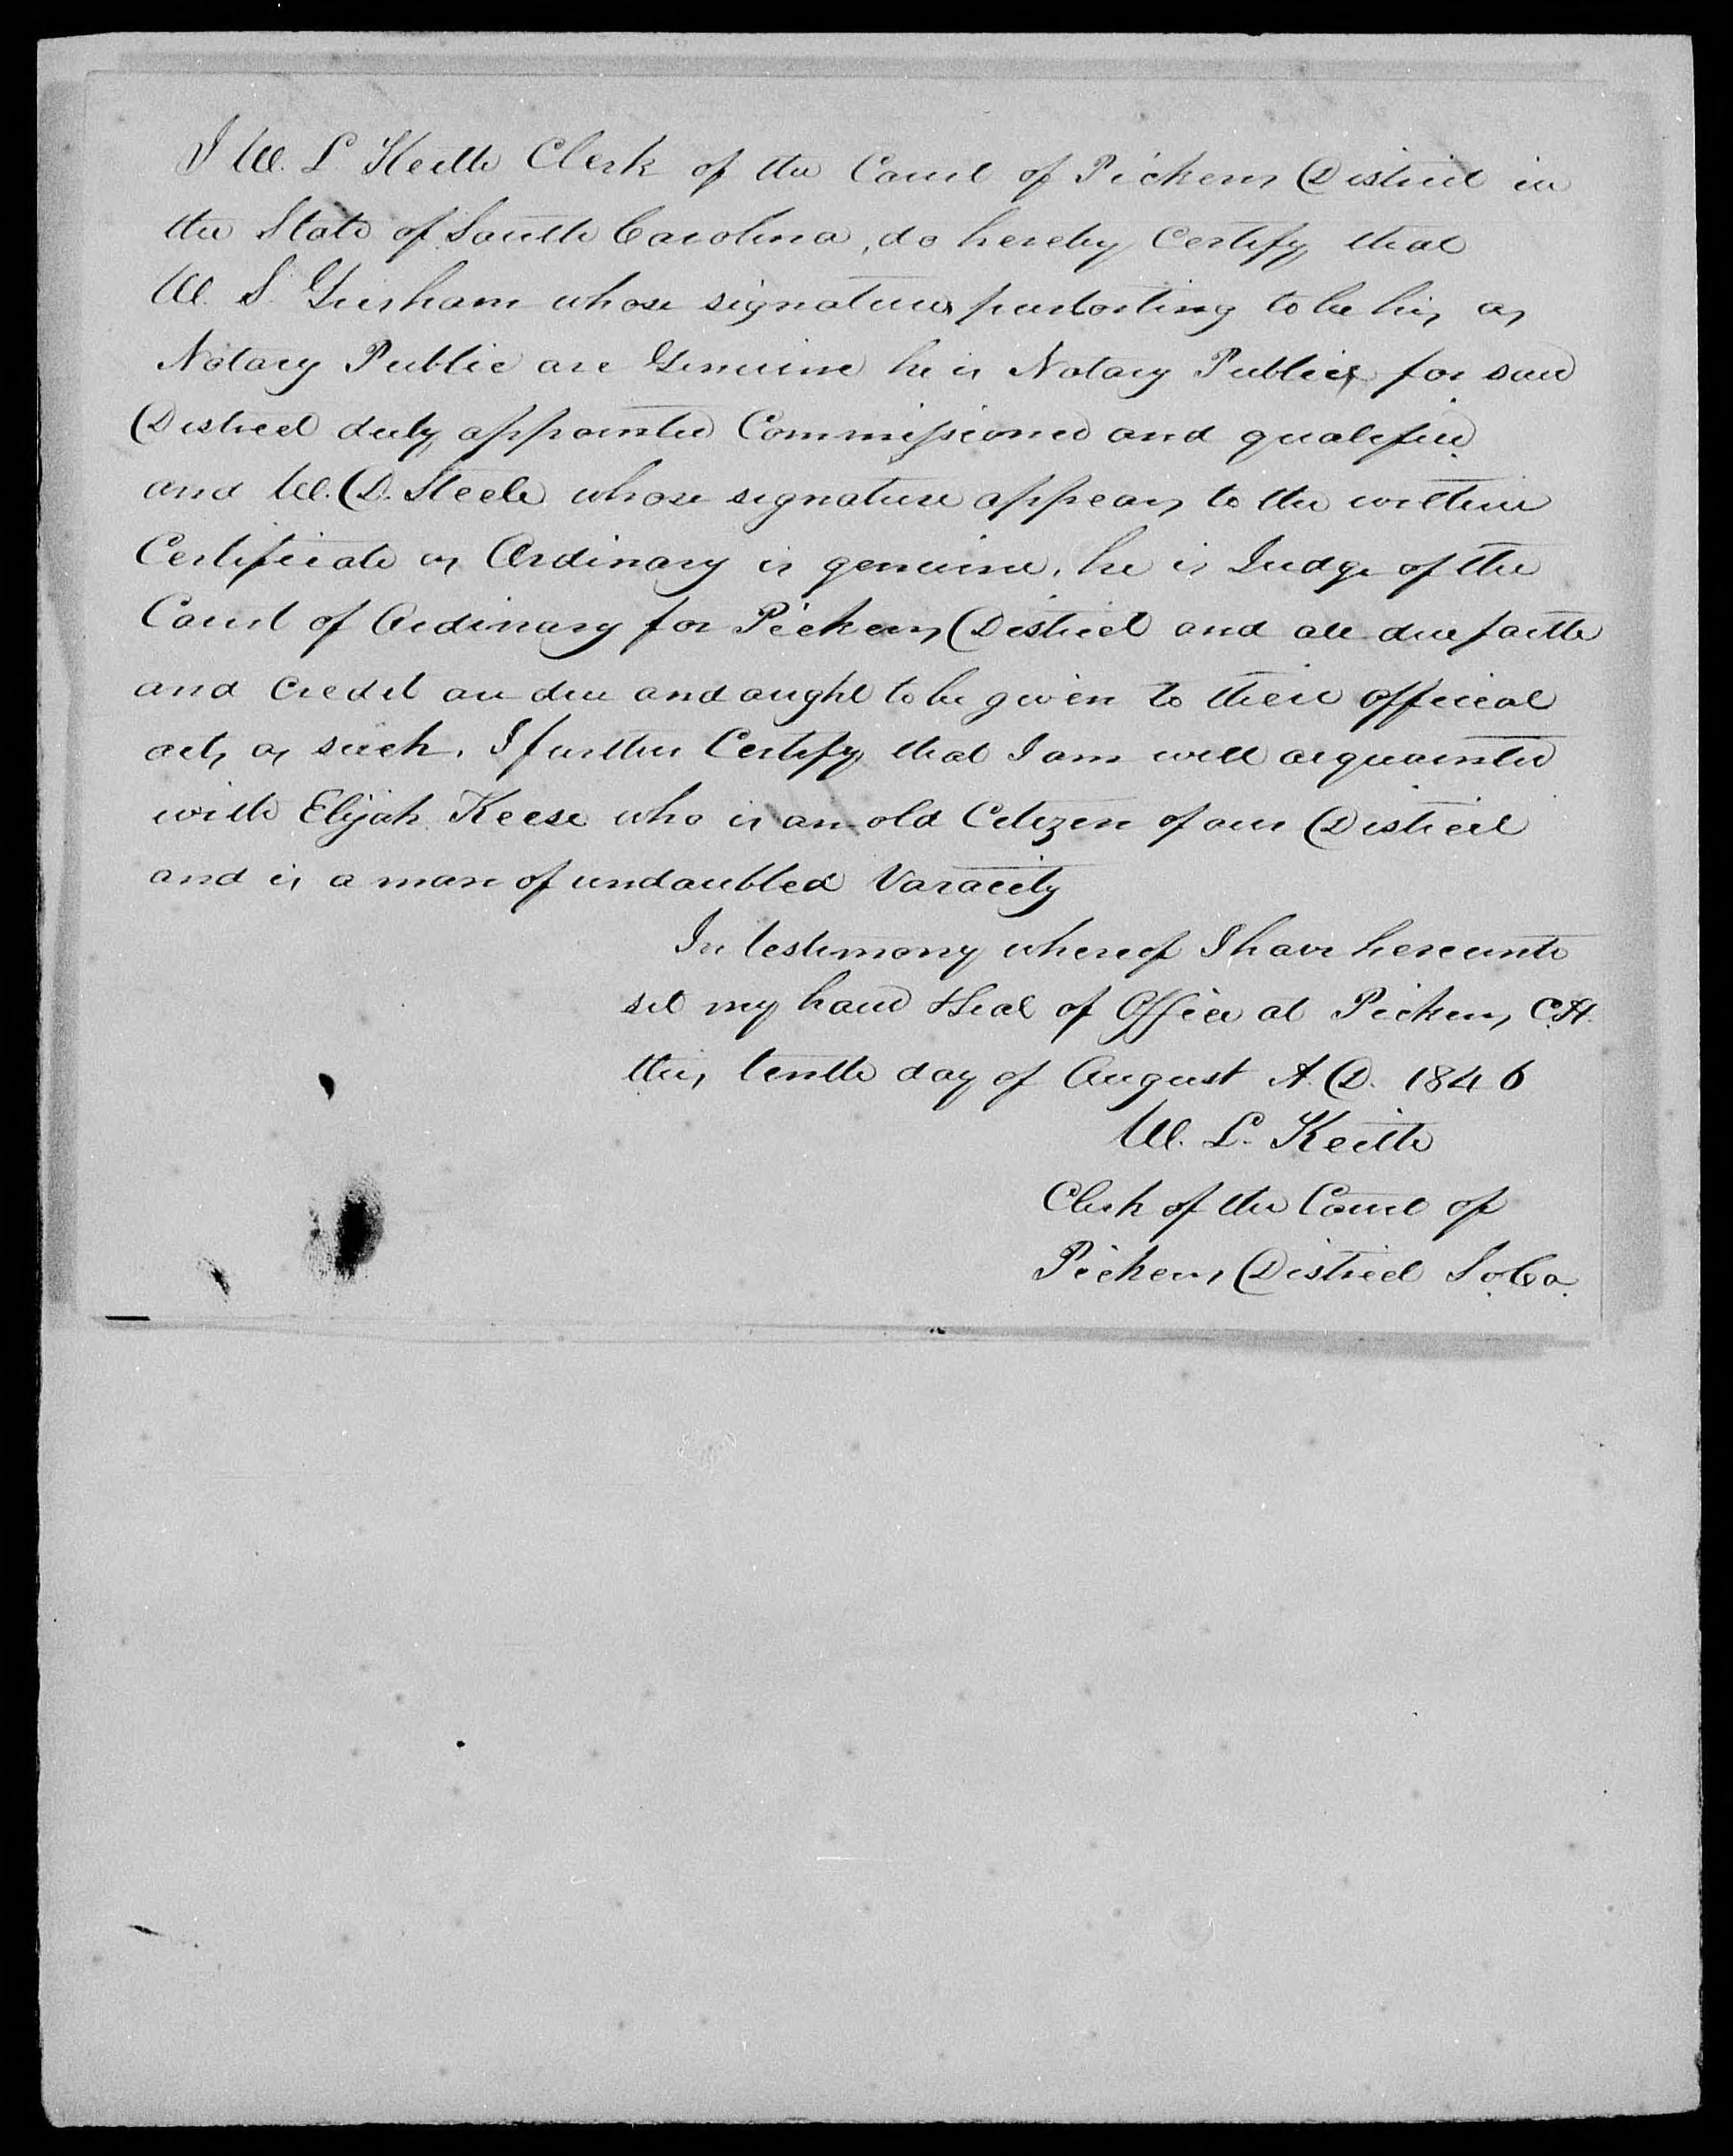 I W. L. Keith Clerk of the Court of Pickens District in
the State of South Carolina, do hereby Certify that
W. S. Grisham whose signatures purporting to be his as
Notary Public are Genuine he is Notary Public for said
District duly appointed Commissioned and qualified
and W. D. Steele whose signature appears to the within
Certificate as Ordinary is genuine, he is Judge of the
Court of Ordinary for Pickens District and all due faith
and credit are due and aught to be given to their official
acts as such. I further Certify that I am well acquainted
with Elijah Keese who is an old Citizen of our District
and is a man of undoubted Varacity
In testimony whereof I have hereunto
set my hand & Seal of Office at Pickens C.H.
this tenth day of August A.D. 1846
W. L. Keith
Clerk of the Court of
Pickens District So. Ca.